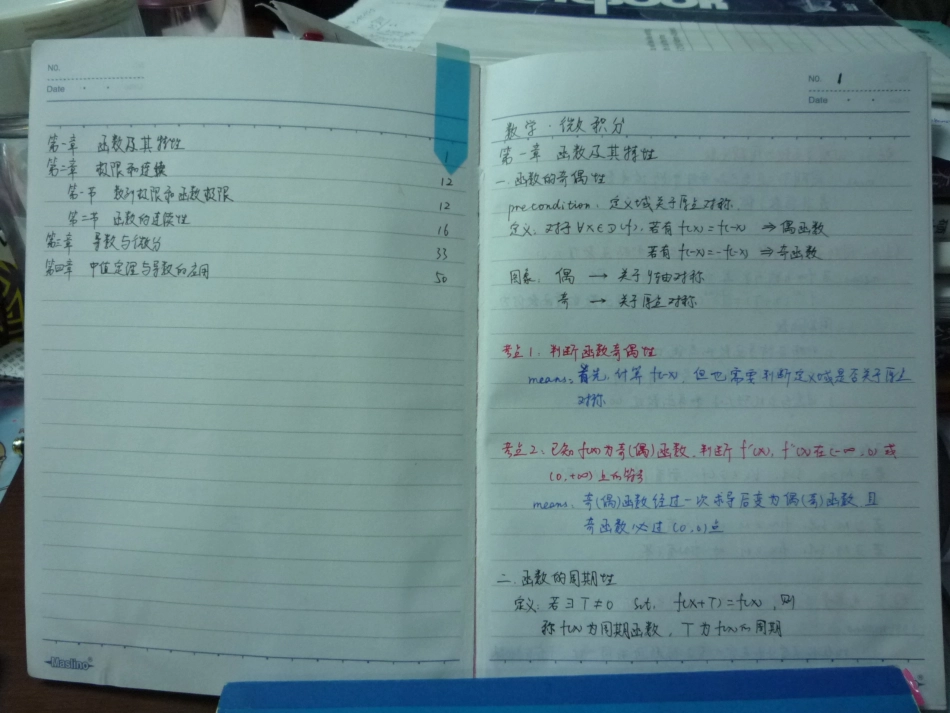 NO.
Date
第一章 函数及其特性 1
第二章 极限和连续 12
第一节 数列极限和函数极限 12
第二节 函数的连续性 16
第三章 导数与微分 33
第四章 中值定理与导数的应用 50
Maslino
NO. 1
Date
数学·微积分
第一章 函数及其特性
一.函数的奇偶性
precondition: 定义域关于原点对称.
定义: 对于∀x∈D(f), 若有 f(x)=f(-x) ⇒偶函数
若有 f(-x)=-f(x) ⇒奇函数
图象: 偶 → 关于y轴对称
奇 → 关于原点对称
考点1: 判断函数奇偶性
means: 首先, 计算 f(-x), 但也需要判断定义域是否关于原点
对称
考点2: 已知f(x)为奇(偶)函数, 判断 f'(x), f''(x)在(-∞,0)或
(0,+∞)上的符号
means: 奇(偶)函数经过一次求导后变为偶(奇)函数, 且
奇函数必过(0,0)点
二.函数的周期性
定义: 若∃T≠0 s.t. f(x+T)=f(x), 则
称f(x)为周期函数, T为f(x)的周期